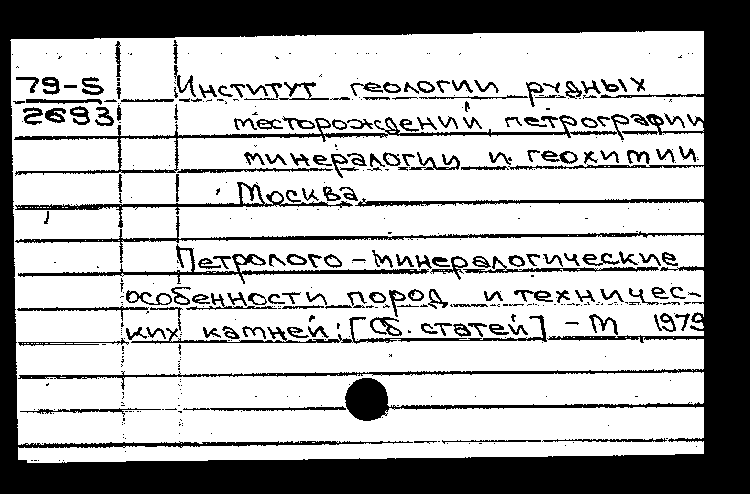 79-5 Институт геологии рудных
2693 месторождений, петрографии
минералогии и геохимии
Москва.
Петролого-минералогические
особенности пород и техничес-
ких камней: [Сб. статей] - М 1979